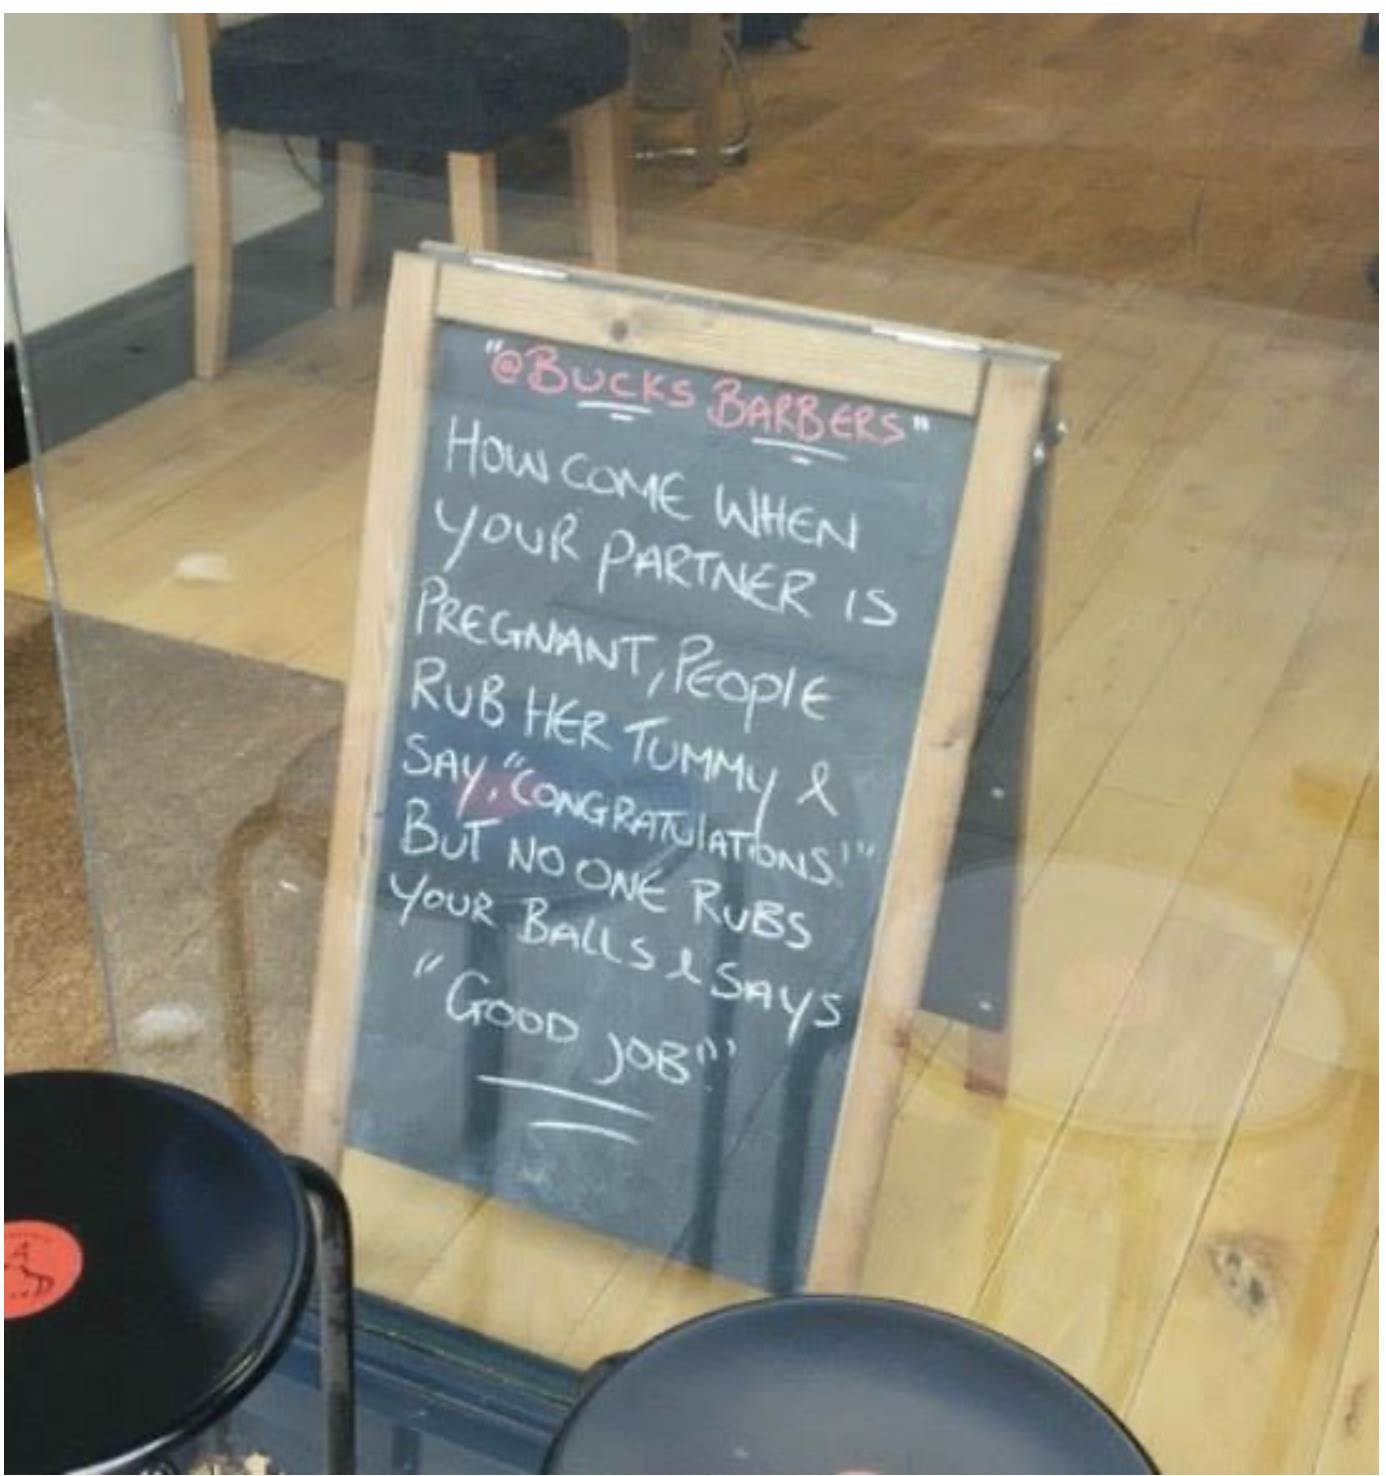 "@BUCKS BARBERS"
HOW COME WHEN
YOUR PARTNER IS
PREGNANT, PEOPLE
RUB HER TUMMY &
SAY, "CONGRATULATIONS!"
BUT NO ONE RUBS
YOUR BALLS & SAYS
"GOOD JOB!"